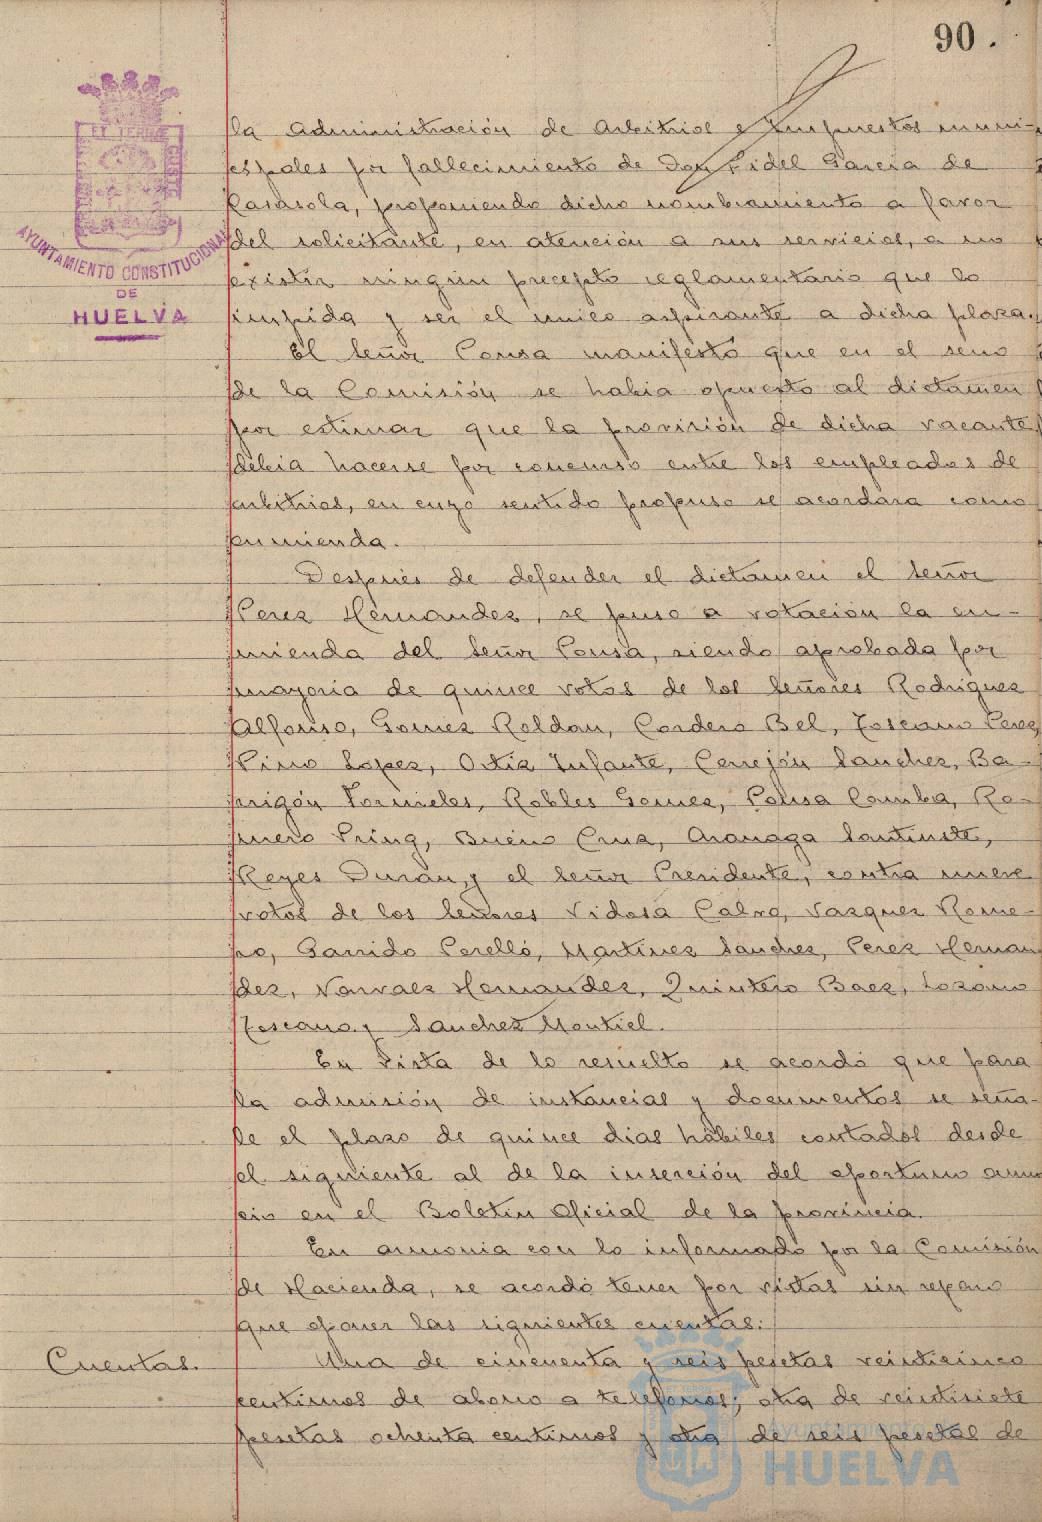 90.
la Administración de Arbitrios e Impuestos muni-
cipales por fallecimiento de Don Fidel Garcia de
Casasola, proponiendo dicho nombramiento a favor
del solicitante, en atención a sus servicios, a no
existir ningún precepto reglamentario que lo
impida y ser el unico aspirante a dicha plaza.
El Señor Ponsa manifestó que en el seno
de la Comisión se habia opuesto al dictamen
por estimar que la provisión de dicha vacante
debia hacerse por concurso entre los empleados de
arbitrios, en cuyo sentido propuso se acordara como
enmienda.
Después de defender el dictamen el Señor
Perez Hernandez, se puso a votación la en-
mienda del Señor Ponsa, siendo aprobada por
mayoria de quince votos de los Señores Rodriguez
Alfonso, Gomez Roldan, Cordero Bel, Toscano Perez
Pino Lopez, Ortiz Infante, Cerrejón Sanchez, Ba-
rrigón Fornieles, Robles Gomez, Ponsa Camba, Ro-
mero Pring, Bueno Cruz, Aranaga Santiuste,
Reyes Durán, y el Señor Presidente, contra nueve
votos de los Señores Vidosa Calvo, Vazquez Rome-
ro, Garrido Perelló, Martinez Sanchez, Perez Hernan
dez, Narvaez Hernandez, Quintero Baez, Lozano
Toscano y Sanchez Montiel.
En vista de lo resuelto se acordó que para
la admisión de instancias y documentos se seña-
le el plazo de quince dias hábiles contados desde
el siguiente al de la inserción del oportuno anun
cio en el Boletin Oficial de la provincia.
En armonia con lo informado por la Comisión
de Hacienda, se acordó tener por vistas sin reparo
que oponer las siguientes cuentas:
Cuentas. Una de cincuenta y seis pesetas veinticinco
centimos de abono a telefonos; otra de veintisiete
pesetas ochenta centimos y otra de seis pesetas de
AYUNTAMIENTO CONSTITUCIONAL
DE
HUELVA
Ayuntamiento de
HUELVA